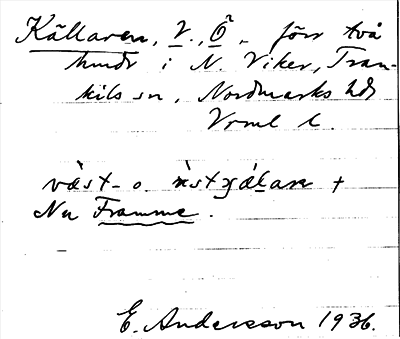 Källaren, V., Ö., förr två
hmdr i N. Viker, Tran-
kils sn, Nordmarks hd
Vrml l.
väst- o. östɟälaṟe +
Nu Framme.
E. Andersson 1936.